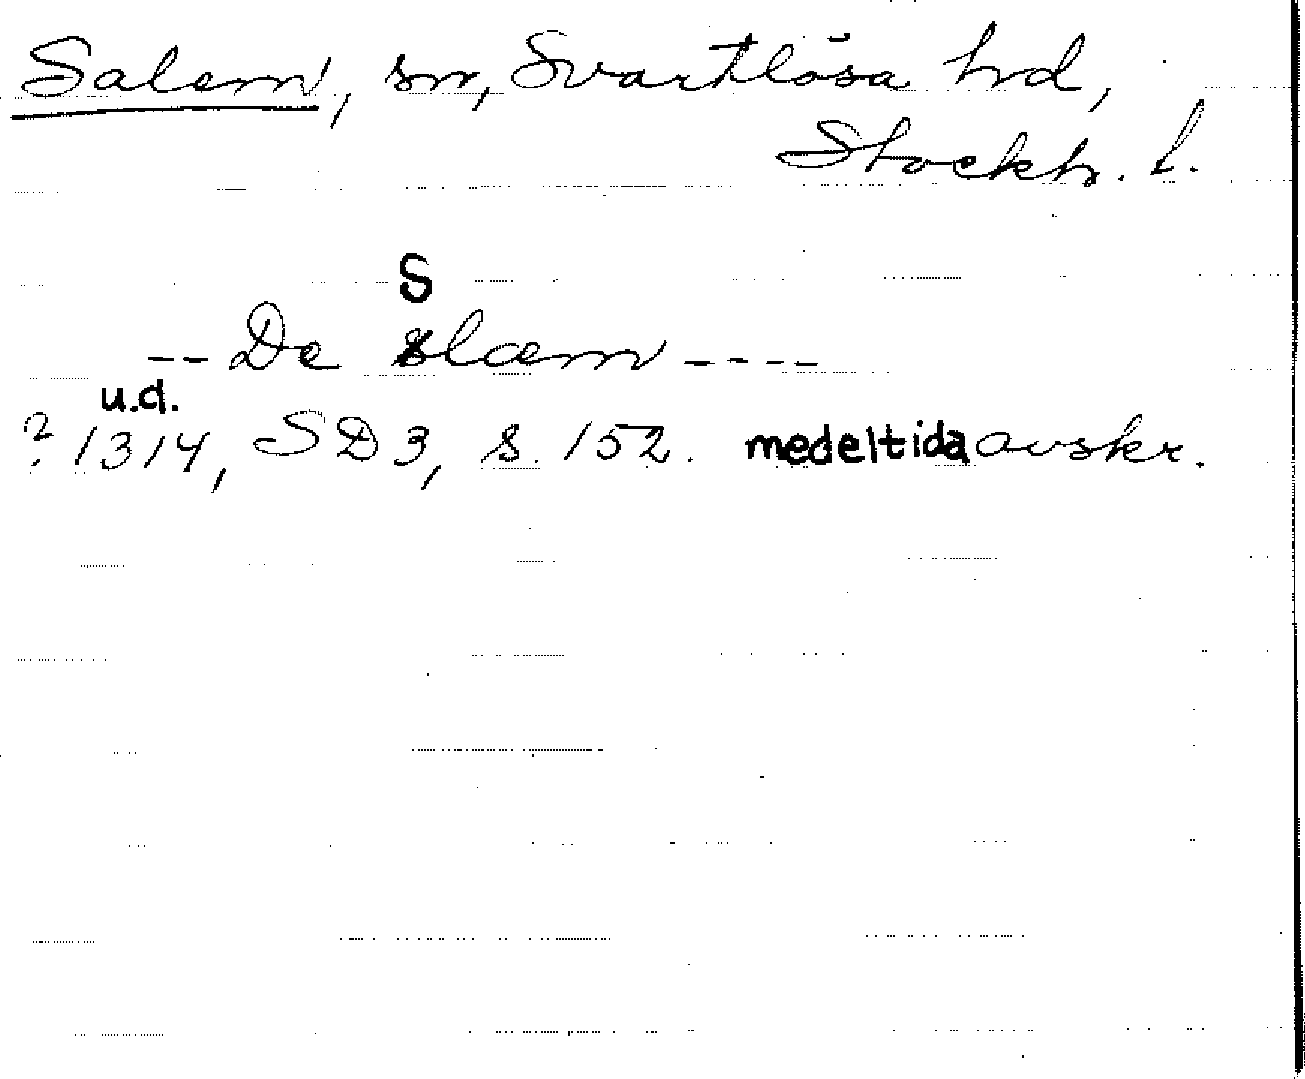 Salem, sn, Svartlösa hd,
Stockh. l.
S
-- De slæm ----
u.d.
? 1314, SD 3, s. 152. medeltida avskr.